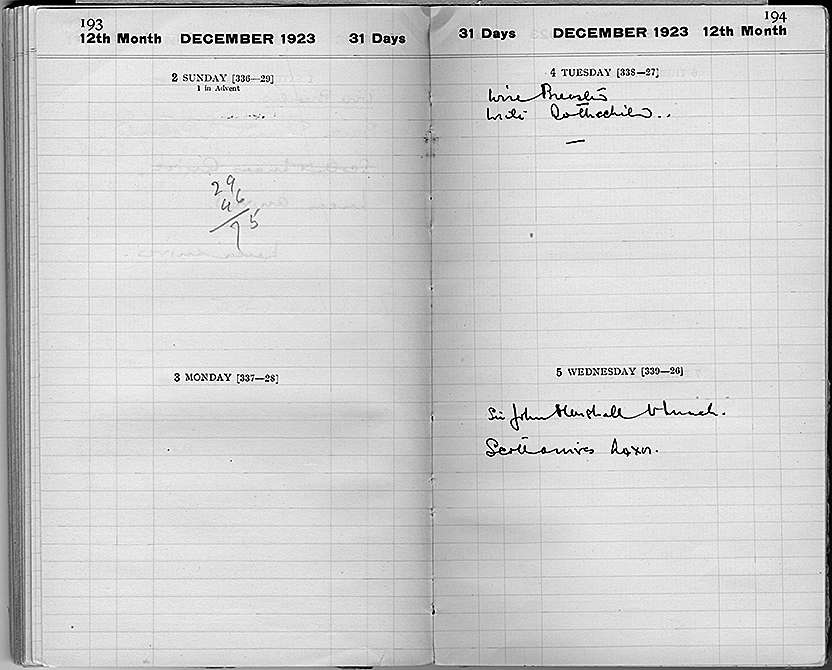 193
12th Month DECEMBER 1923 31 Days
2 SUNDAY [336—29]
1 in Advent
29
46
75
3 MONDAY [337—28]
194
31 Days DECEMBER 1923 12th Month
4 TUESDAY [338—27]
Wire Breasted
Write Rothschild..
5 WEDNESDAY [339—26]
Sir John Marshall to lunch.
Scott arrives Luxor.